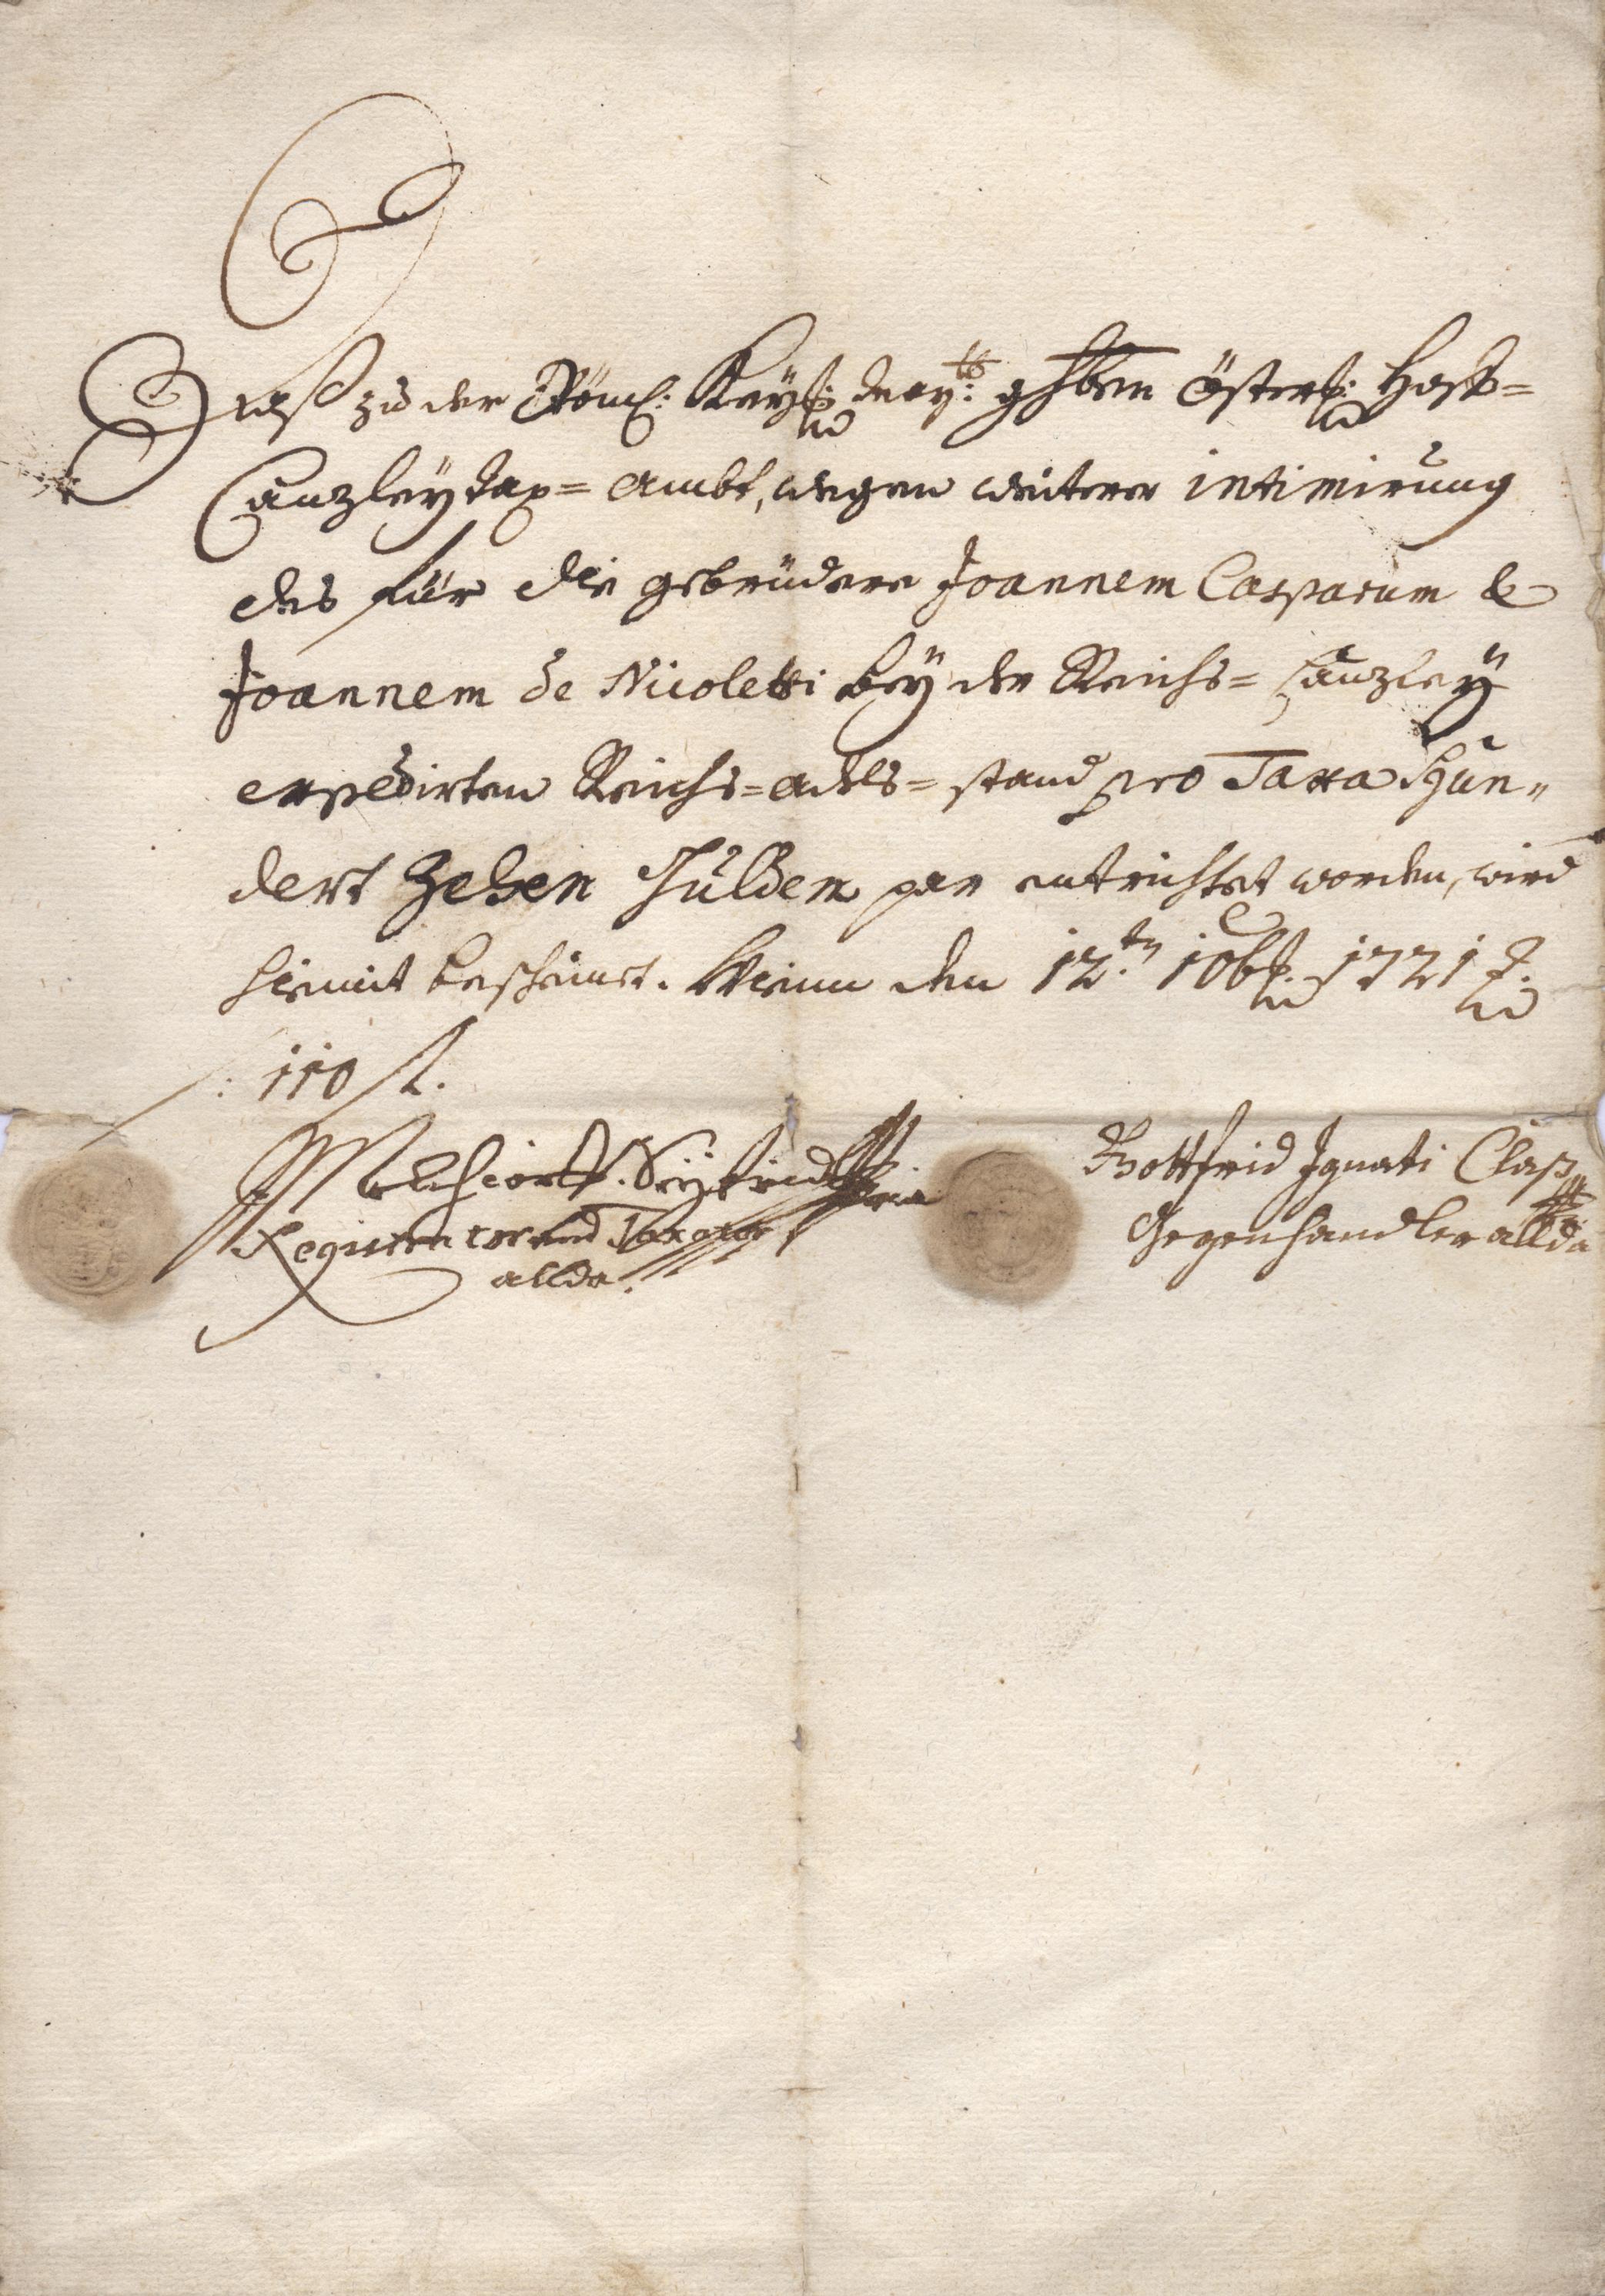 Daß zu der Röml: Keyßl: May:tt ghbten Österl: Hoff=
Canzley tax= ambt, wegen weiterer intimirung
des für die gebrüdere Joannem Casparum &
Joannem de Nicoletti beÿ der Reichs= Canzleÿ
expedirten Reichs=adls= stand pro Taxa Hun„
dert Zehen Gulden par entrichtet worden, wird
hiemit bescheinet. Wienn den 12.tn 10br. 1721 J.
: 110 fl.
Melchior F. Seyfrid
Registrator und Taxator
allda.
Gottfrid Ignati Clas
Gegenhandler allda